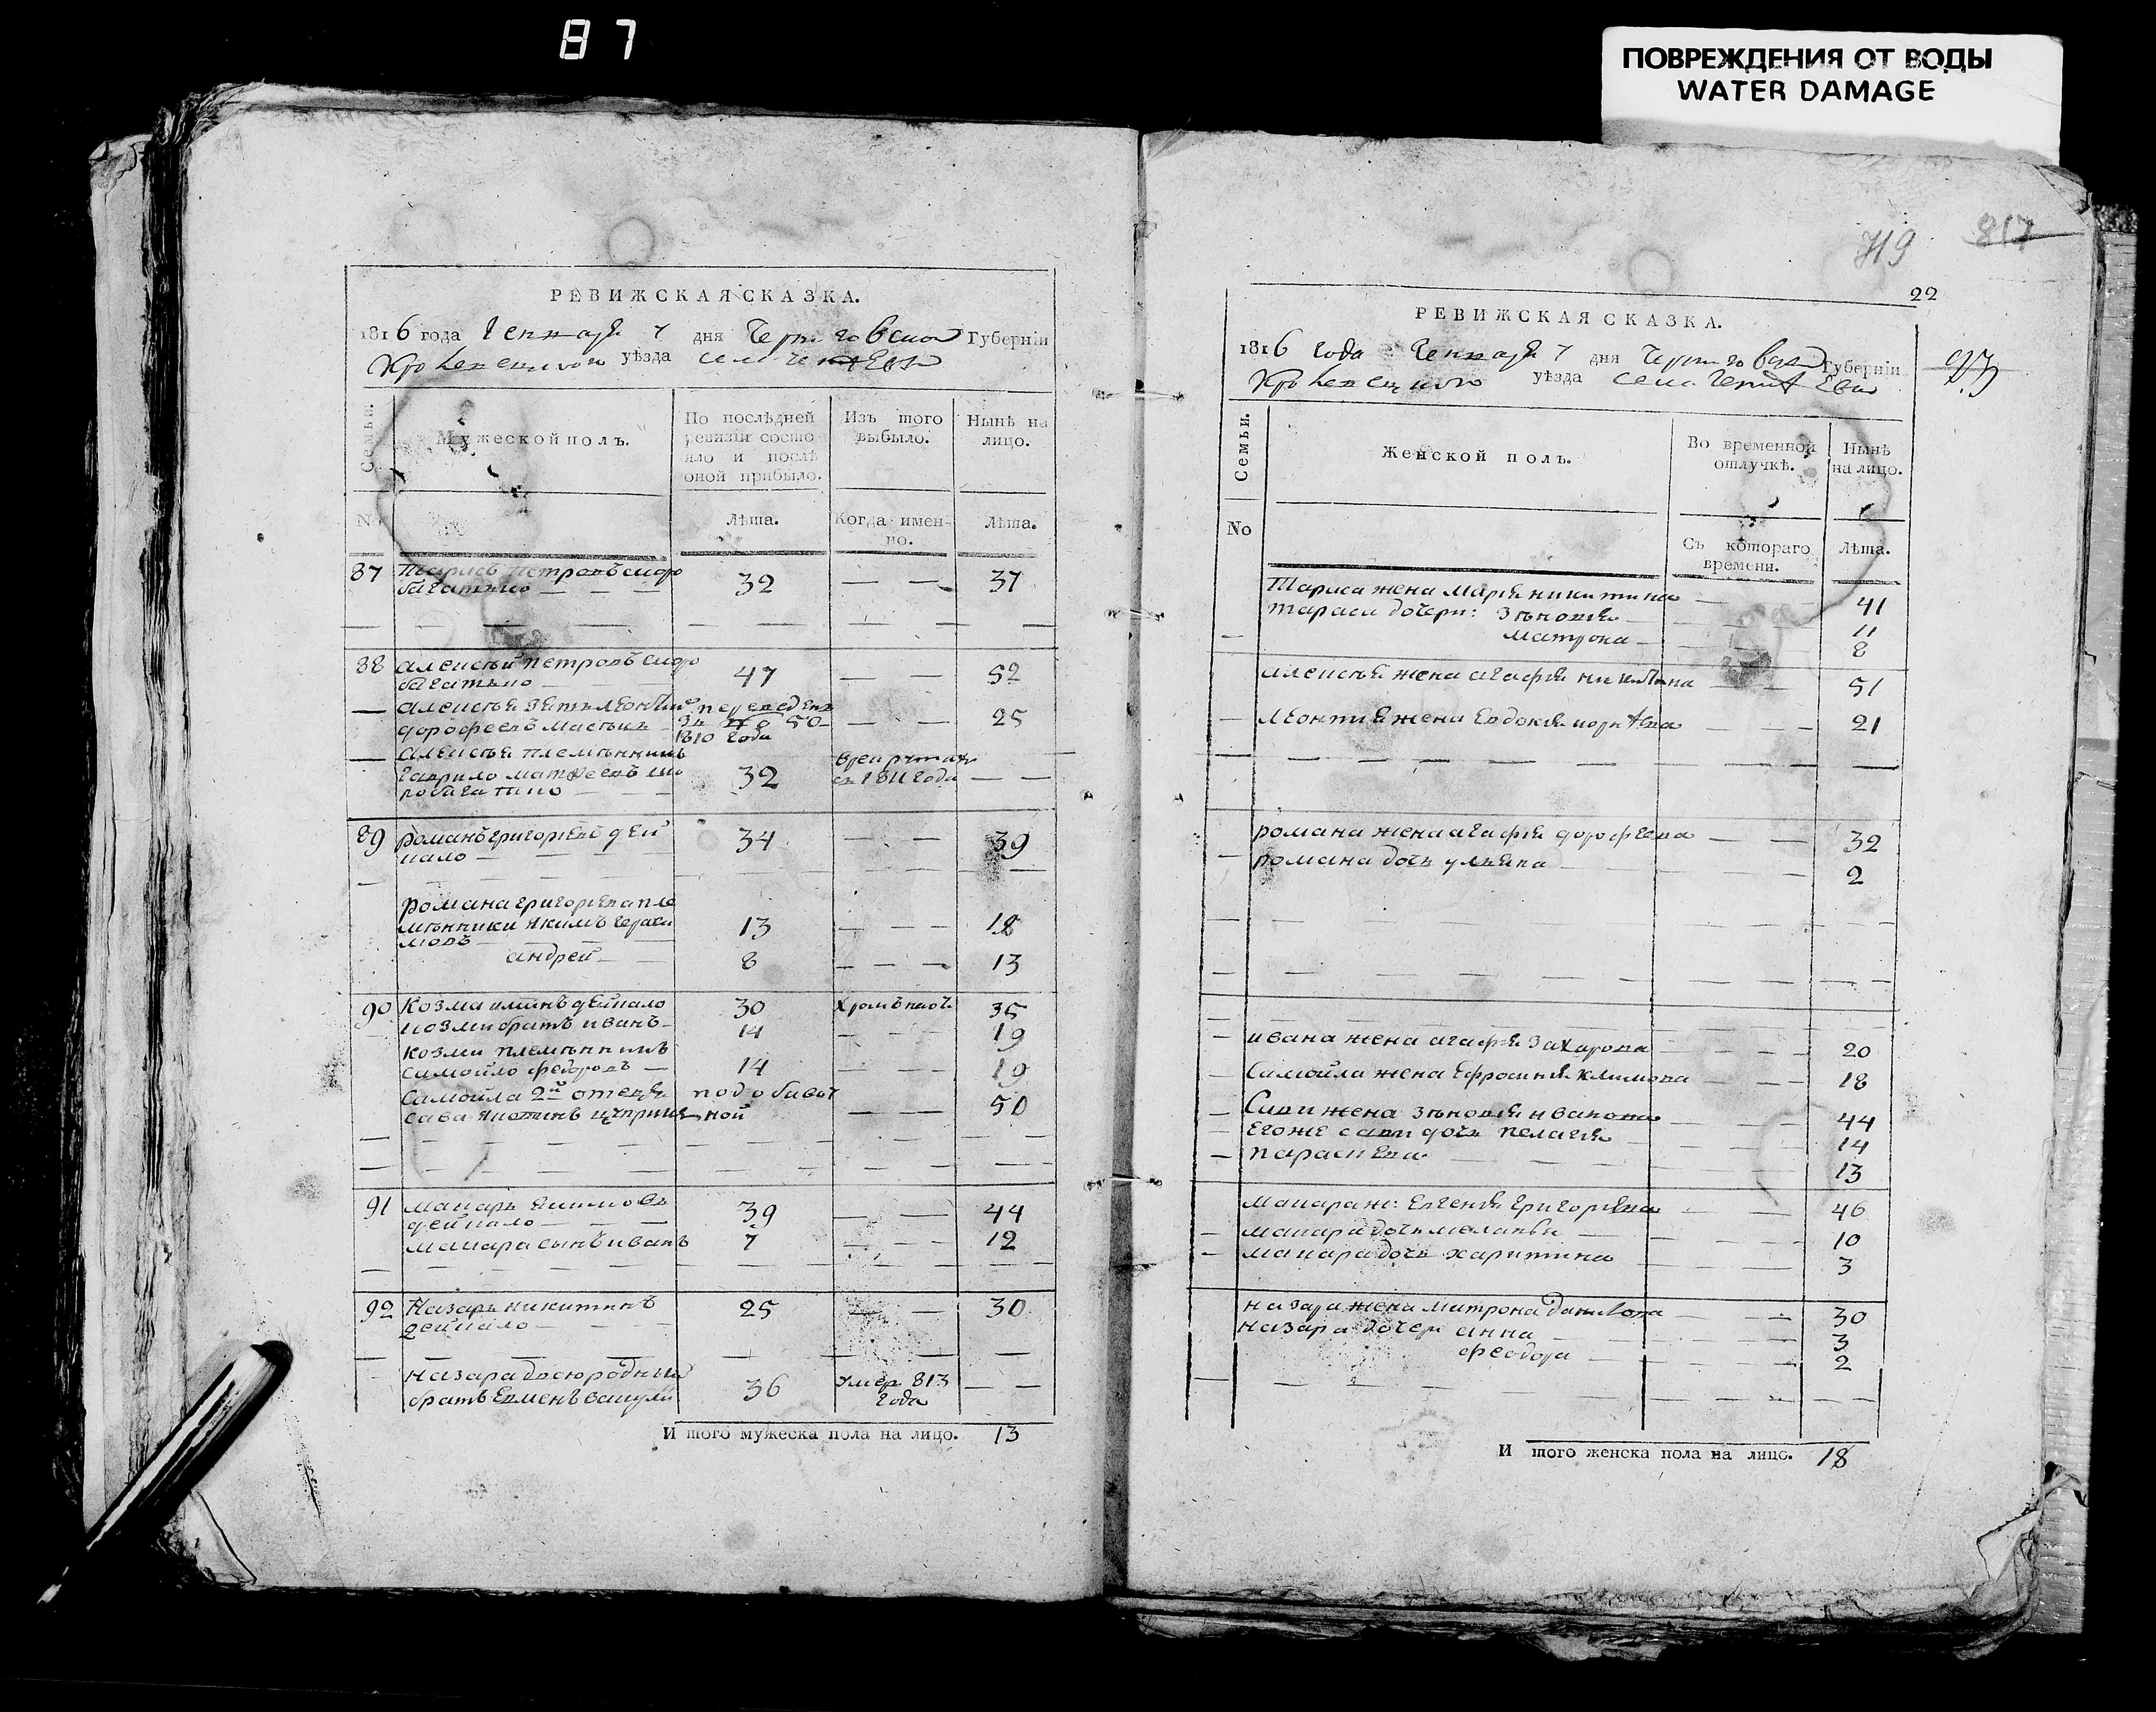 87
ПОВРЕЖДЕНИЯ ОТ ВОДЫ
WATER DAMAGE
РЕВИЖСКАЯ СКАЗКА.
1816 года Генваря 7 дня Черниговской Губернїи
Кролевецкого уѣзда села
Семьи.
Мужеской полъ.
По послѣдней ревизїи состояло и послѣ оной прибыло.
Изъ того выбыло.
Нынѣ на лицо.
No
Лѣта.
Когда именно.
Лѣта.
87 Тарасъ Петровъ скоро
багатько — — — 32 — — 37
88 алексѣй петровъ скоро
багатько 47 — — 52
алексѣя зять леонтий переведенъ
дорофеевъ 50 — — 25
1810 года
алексѣя племѣнникъ
гаврило матвеевъ ско
робагатко 32 с 1811 года — —
89 романъ григориевъ дей
нало — 34 — — 39
романа григориева пле
мѣнники якимъ гераси
мовъ 13 — — — 18
андрей 8 — — — 13
90 Козма дейнало 30 хромъ 35
козми братъ иванъ 14 — — 19
козми племѣнникъ
самойло федоровъ — 14 — — 19
самойла 2й отецъ
сава 50
91 макаръ
дейнало — 39 — — 44
макара сынъ иванъ 7 — — 12
92 Назаръ никитинъ
дейнало — 25 — — 30
назара двоюродный
братъ 36 умер 813
года — —
И того мужеска пола на лицо. 13
719 817
22
РЕВИЖСКАЯ СКАЗКА.
1816 года Генваря 7 дня Черниговской Губернїи
Кролевецкого уѣзда села
Семьи.
Женской полъ.
Во временной отлучкѣ.
Нынѣ на лицо.
No
Съ котораго времени.
Лѣта.
Тараса жена марія никитина — 41
тараса дочери: зѣновия — 11
матрона — 8
алексѣя жена агафия никитина 51
леонтия жена евдокия 21
романа жена агафия дорофеева — — 32
романа дочь ульяна — 2
ивана жена агафия захарова 20
самойла жена ефросиния климова 18
Сави жена зѣновия иванова 44
егоже сави дочь пелагея 14
параскева 13
макара ж: евгения григориева 46
макара дочь меланья — 10
макара дочь харитина 3
назара жена матрона данилова 30
назара дочери анна 3
феодора 2
И того женска пола на лицо. 18